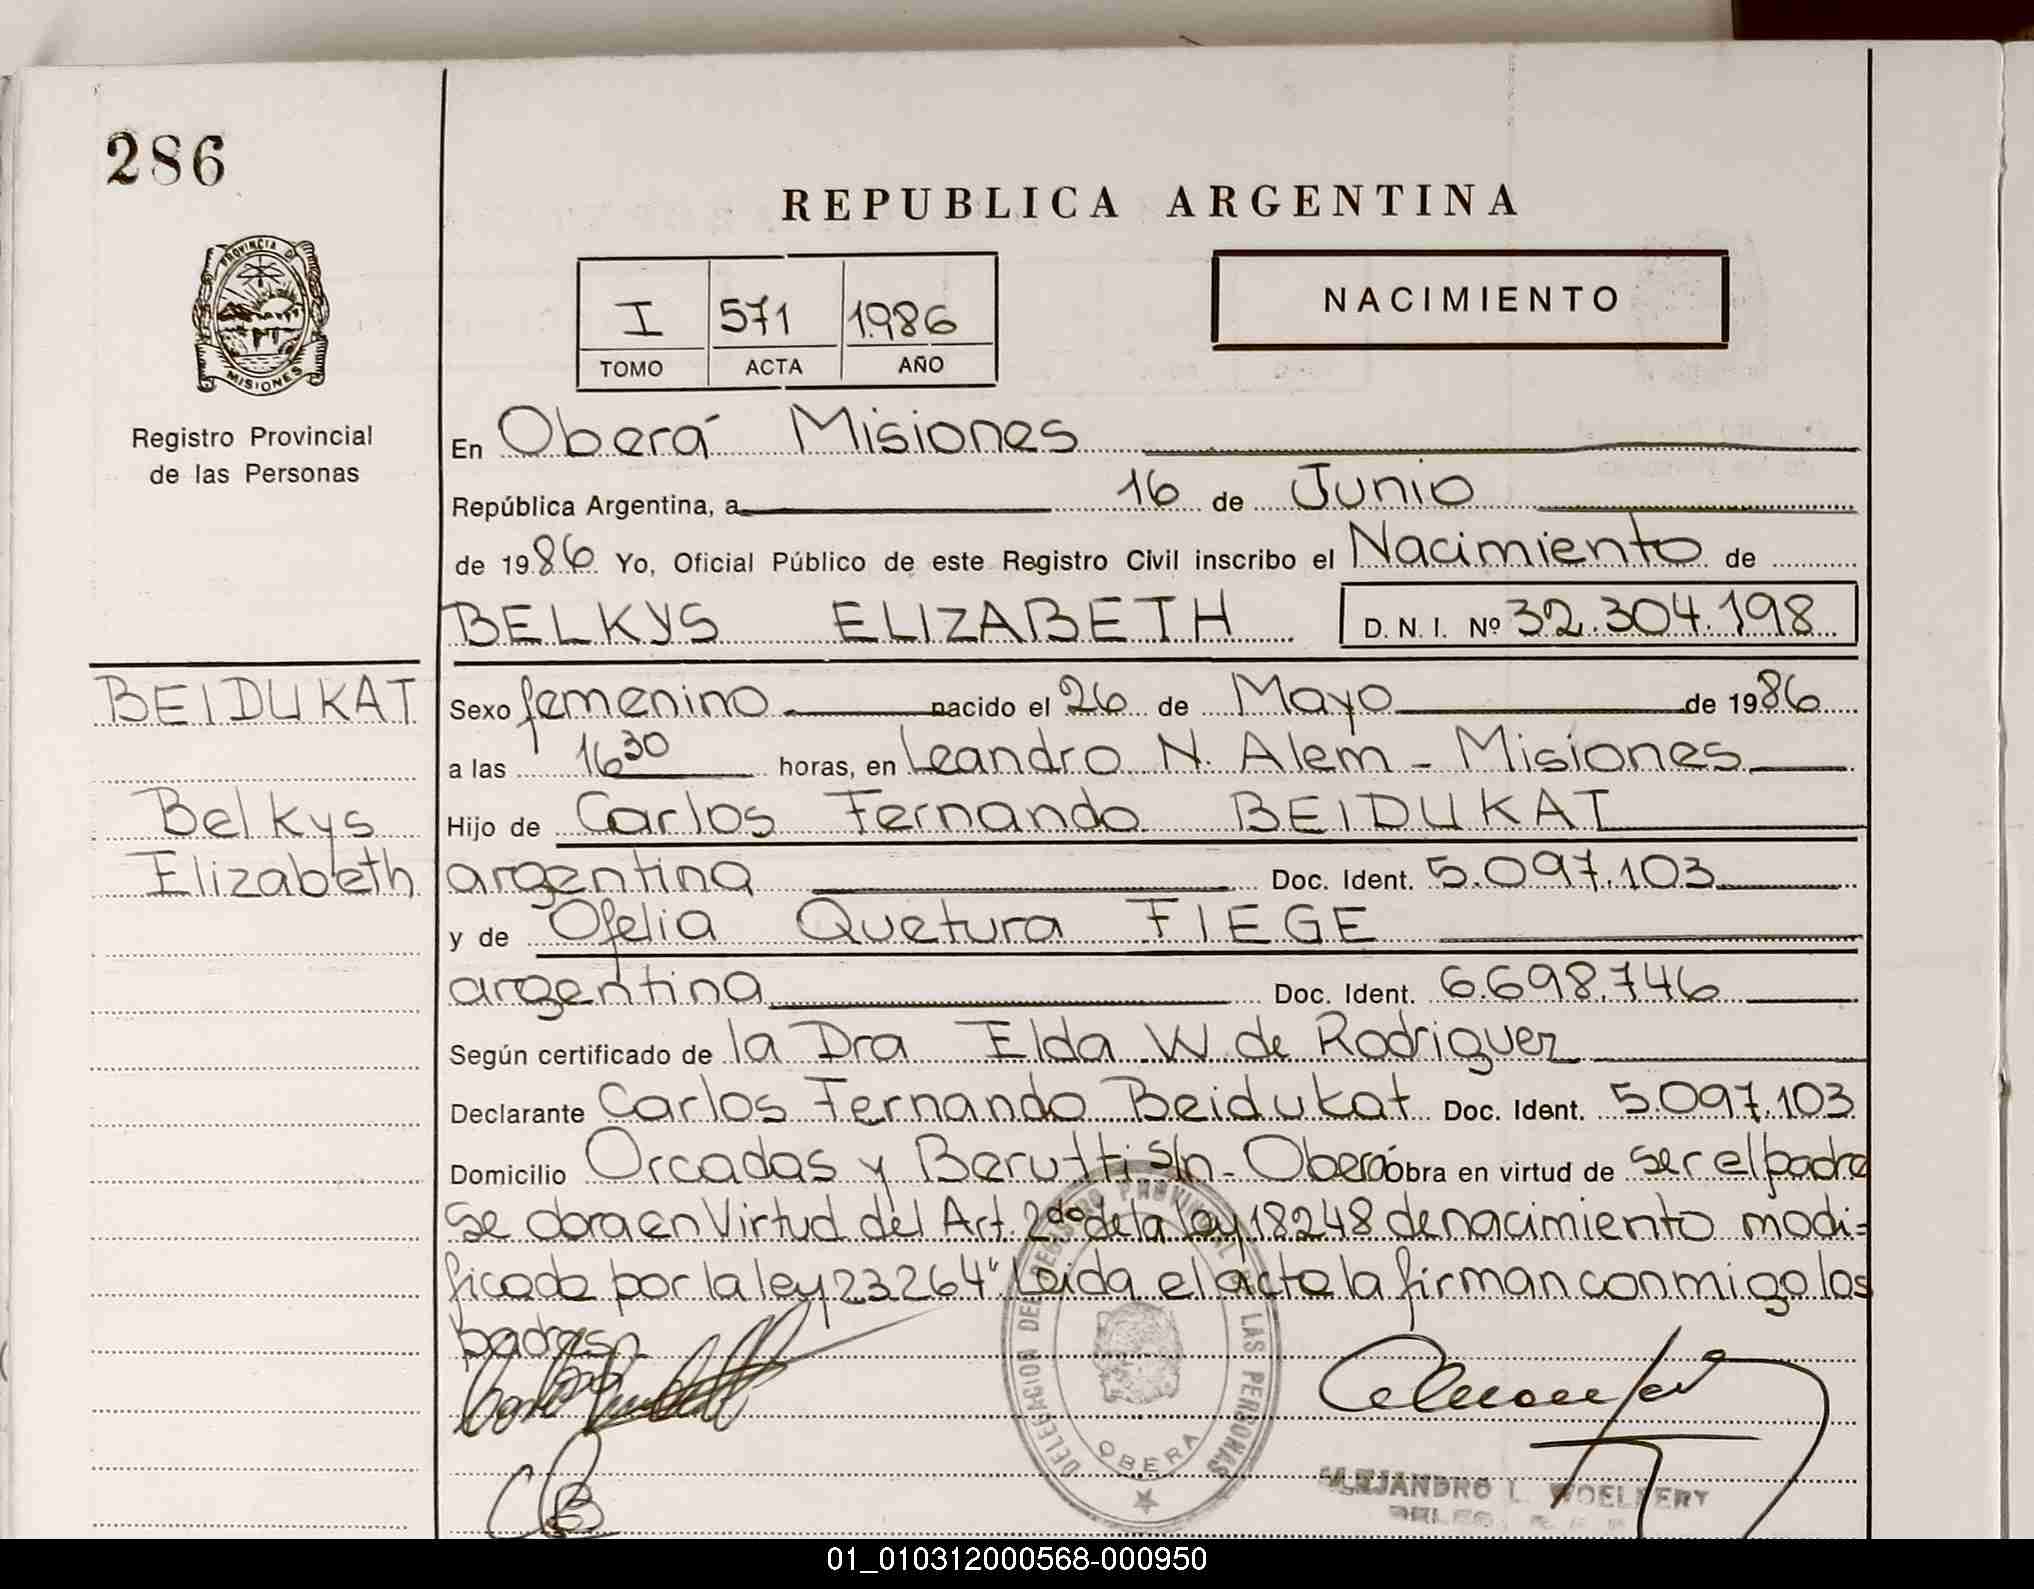 286
REPUBLICA ARGENTINA
PROVINCIA D
MISIONES
Registro Provincial
de las Personas
I 571 1986
TOMO ACTA AÑO
NACIMIENTO
En Oberá Misiones
República Argentina, a 16 de Junio
de 1986 Yo, Oficial Público de este Registro Civil inscribo el Nacimiento de
BELKYS ELIZABETH D. N. I. Nº 32.304.198
BEIDUKAT
Belkys
Elizabeth
Sexo femenino nacido el 26 de Mayo de 1986
a las 16 30 horas, en Leandro N. Alem - Misiones
Hijo de Carlos Fernando BEIDUKAT
argentina Doc. Ident. 5.097.103
y de Ofelia Quetura FIEGE
argentina Doc. Ident. 6.698.746
Según certificado de la Dra Elda W. de Rodriguez
Declarante Carlos Fernando Beidukat Doc. Ident. 5.097.103
Domicilio Orcadas y Berutti s/n - Oberá obra en virtud de ser el padre
Se obra en Virtud del Art. 2do de la ley 18248 de nacimiento modi=
ficado por la ley 23264" Leida el acta la firman conmigo los
padres
DELEGACION DEL REGISTRO PROVINCIAL DE LAS PERSONAS
OBERA
ALEJANDRO L.
01_010312000568-000950